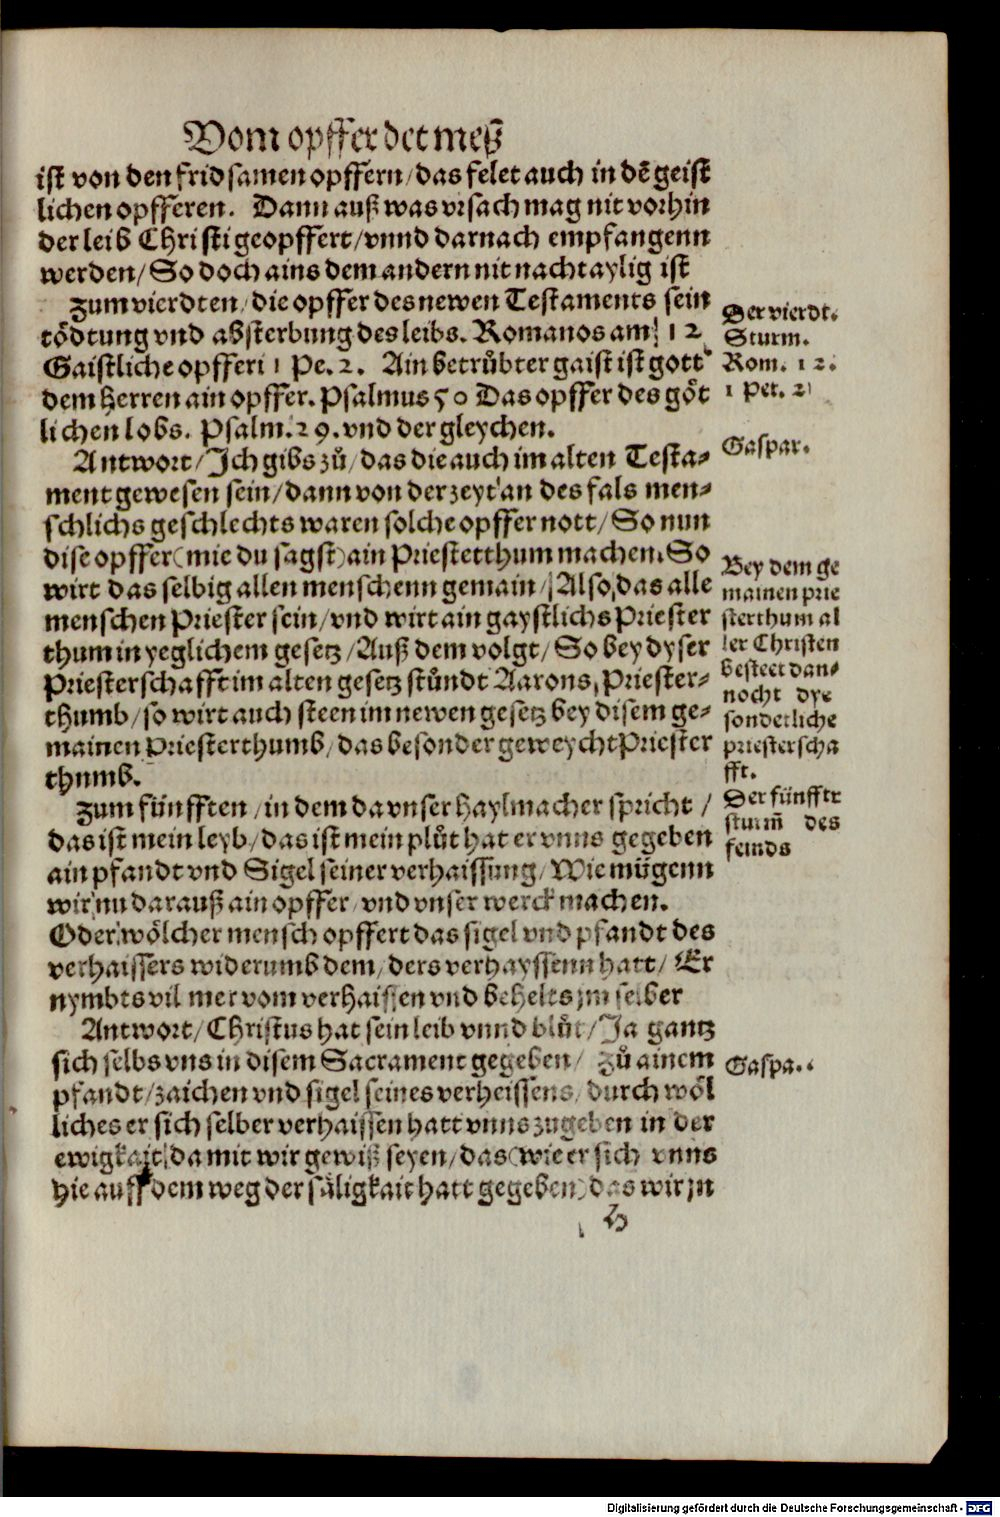 Vom opffer der meß
ist von den fridsamen opffern/das felet auch in dē geist
lichen opfferen. Dann auß was vrsach mag nit vorhin
der leib Christi geopffert/vnnd darnach empfangenn
werden/So doch ains dem andern nit nachtaylig ist
Zum vierdten/die opffer des newen Testaments sein
tödtung vnd absterbung des leibs. Romanos am 12
Gaistliche opfferi 1 Pe.2. Ain betrůbter gaist ist gott
dem Herren ain opffer. Psalmus 50 Das opffer des göt
lichen lobs. Psalm.29.vnd der gleychen.
Antwort/Ich gibs zů/das die auch im alten Testa-
ment gewesen sein/dann von der zeyt an des fals men-
schlichs geschlechts waren solche opffer nott/So nun
dise opffer(mie du sagst)ain Priestetthum machen.So
wirt das selbig allen menschenn gemain/Also,das alle
menschen Priester sein/vnd wirt ain gaystlichs Priester
thum in yeglichem gesetz/Auß dem volgt/So bey dyser
Priesterschafft im alten gesetz stůndt Aarons,Priester-
thumb/so wirt auch steen im newen gesetz bey disem ge-
mainen Priesterthumb/das besonder geweycht Priester
thumb.
Zum fünfften/in dem da vnser haylmacher spricht/
das ist mein leyb/das ist mein plůt hat er vnns gegeben
ain pfandt vnd Sigel seiner verhaissung/Wie mügenn
wir nu darauß ain opffer/vnd vnser werck machen.
Oder wölcher mensch opffert das sigel vnd pfandt des
verhaissers widerumb dem/ders verhayssenn hatt/Er
nymbts vil mer vom verhaissen vnd behelts jm selber
Antwort/Christus hat sein leib vnnd blůt/Ja gantz
sich selbs vns in disem Sacrament gegeben/ Zů ainem
pfandt/zaichen vnd sigel seines verheissens/durch wöl
liches er sich selber verhaissen hatt vnns zugeben in der
ewigkait/da mit wir gewiß seyen/das(wie er sich vnns
hie auff dem weg der säligkait hatt gegeben)das wir jn
h
Der vierdt.
Sturm.
Rom. 12.
1 Pet. 2
Gaspar.
Bey dem ge
mainen prie
sterthum al
ler Christen
besteet dan-
nocht dye
sonderliche
priesterscha
fft.
Der fünfft
sturm̄ des
feinds
Gaspa.
Digitalisierung gefördert durch die Deutsche Forschungsgemeinschaft - DFG